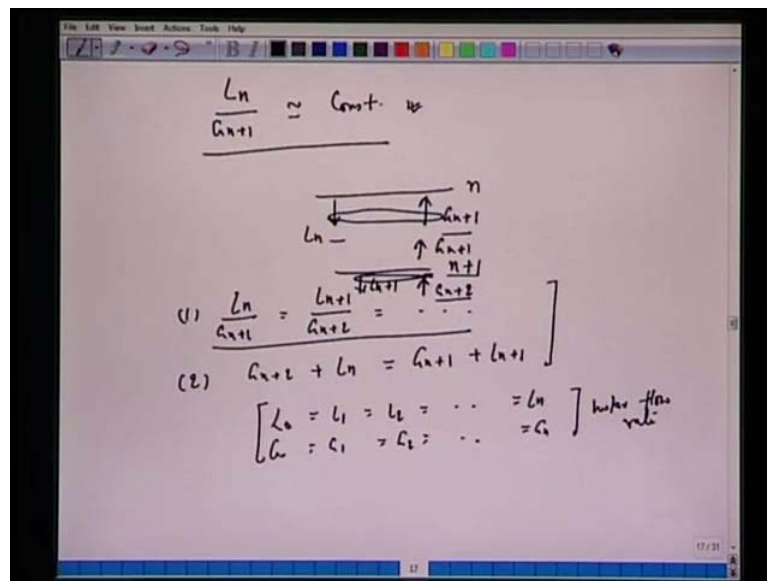 File Edit View Insert Actions Tools Help
B I
Ln / Gn+1 ≃ Const.
n
Ln Gn+1
Gn+1
n+1
Ln+1 Gn+2
(1) Ln / Gn+1 = Ln+1 / Gn+2 = . . .
(2) Gn+2 + Ln = Gn+1 + Ln+1
L0 = L1 = L2 = . . = Ln ] molar flow
G = G1 = G2 = . . = Gn rate
17/31
17